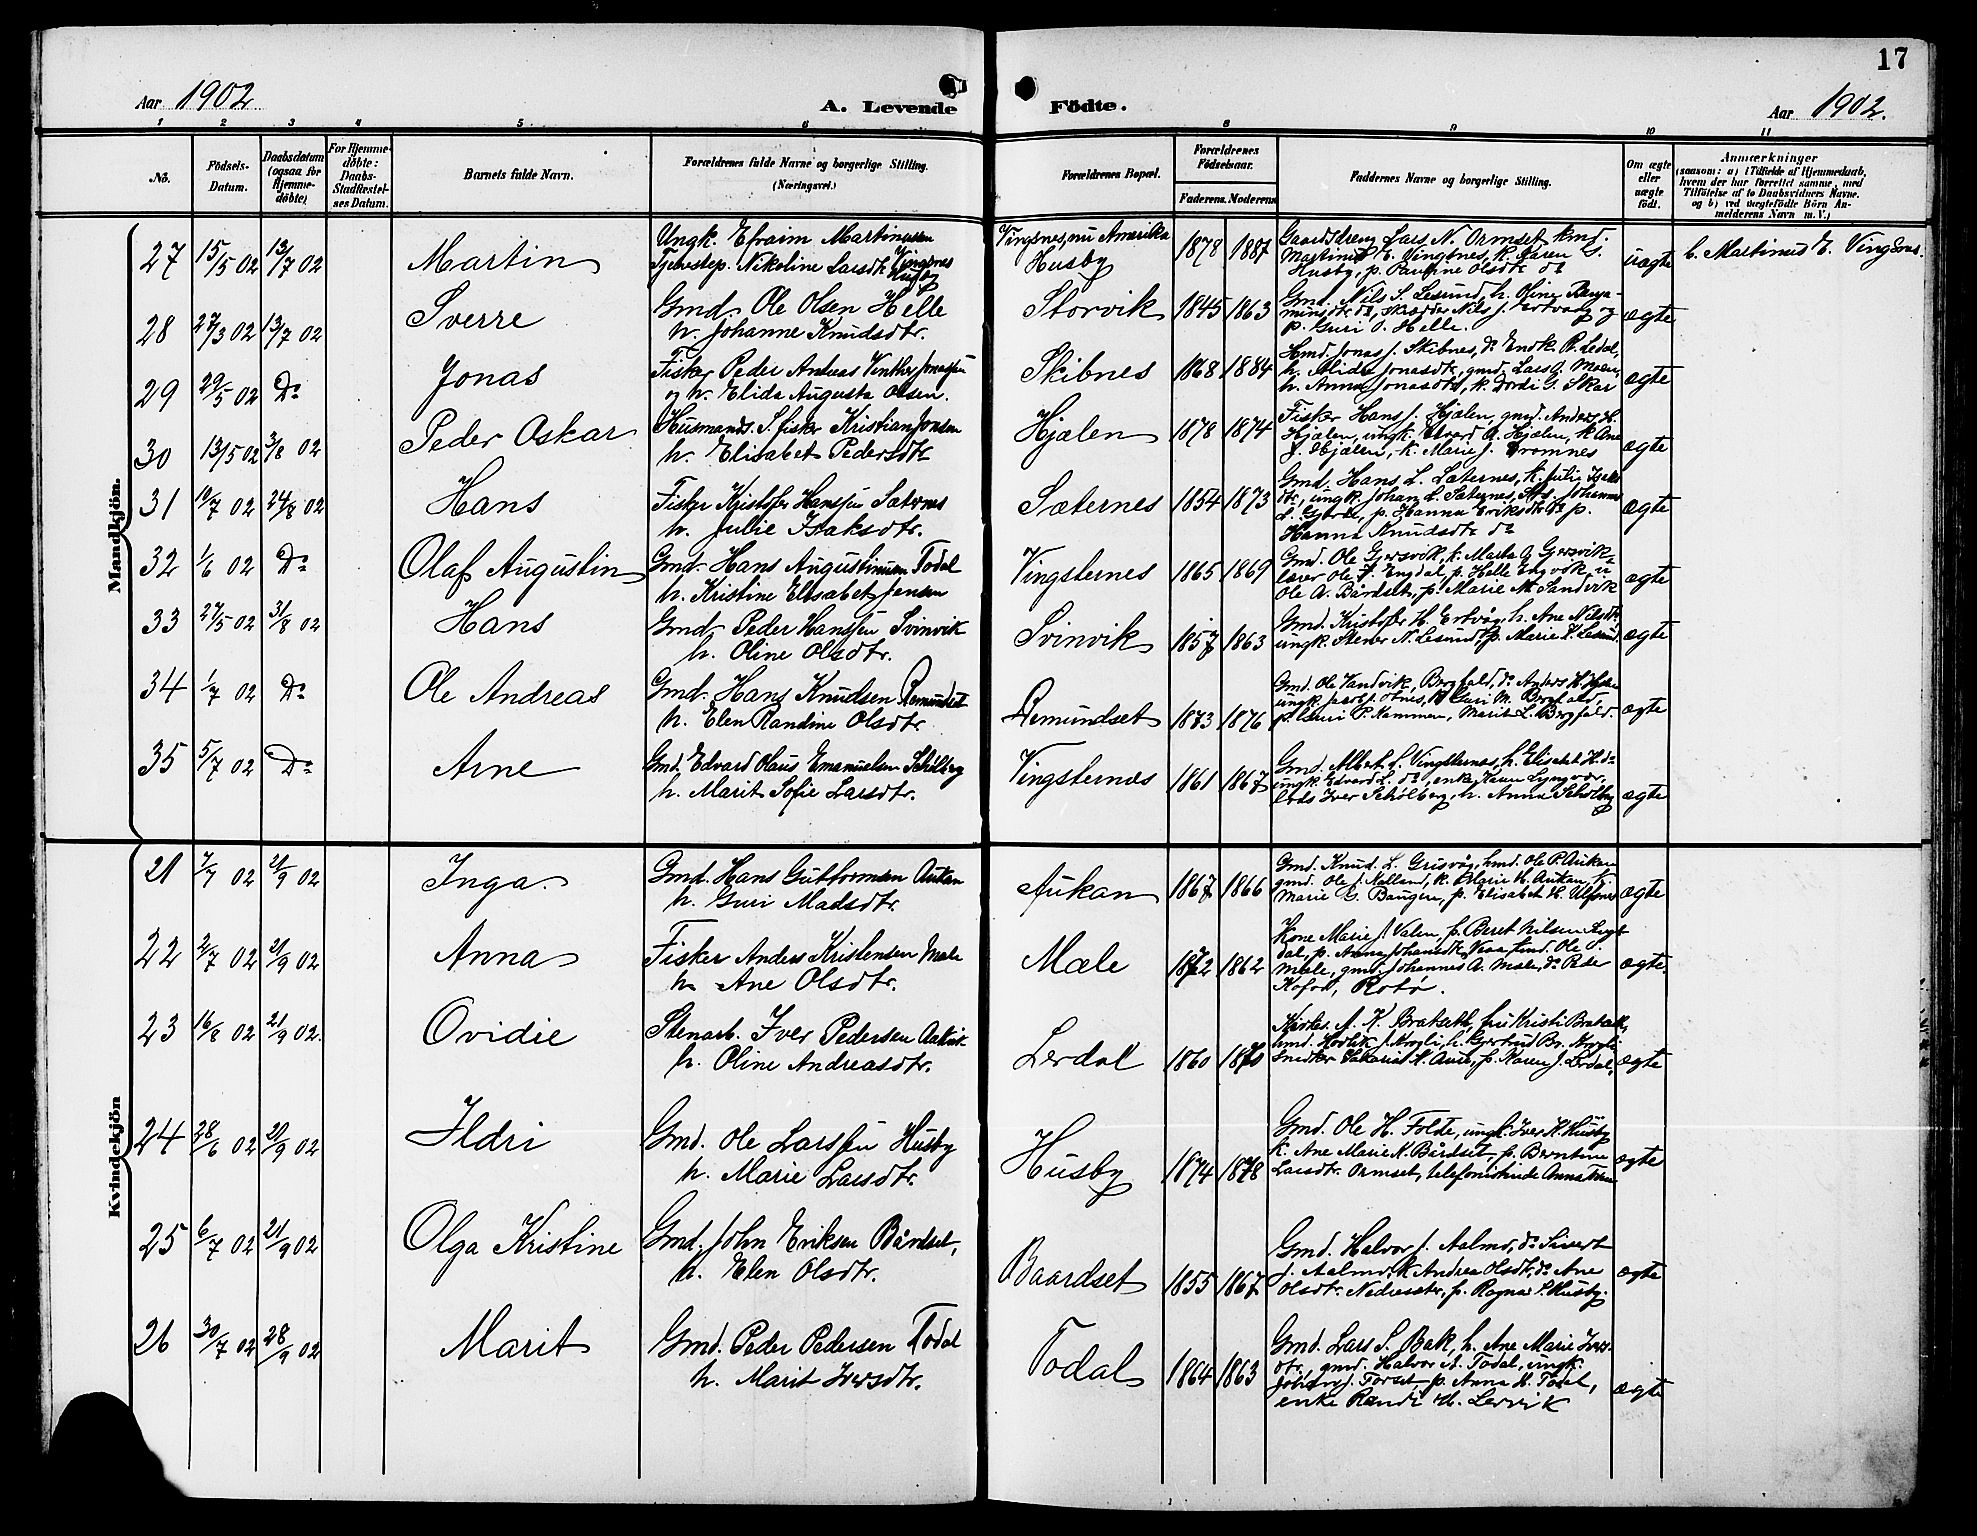 17
Aar 1902
A. Levende
Födte.
Aar 1902.
1 2 3 4 5 6 8 9 10 11
No.
Födsels-Datum.
Daabsdatum (ogsaa for Hjemmedöbte)
For Hjemmedöbte: Daabs-Stadfæstelses Datum.
Barnets fulde Navn.
Forældrenes fulde Navne og borgerlige Stilling.
(Næringsvei.)
Forældrenes Bopæl.
Forældrenes Födselsaar.
Faderens. Moderens
Faddernes Navne og borgerlige Stilling.
Om ægte eller uægte födt.
Anmærkninger
(saasom: a) i Tilfælde af Hjemmedaab, hvem der har forrettet samme, med Tilföielse af to Daabsvidners Navne. og b) ved uægtefödte Börn Anmelderens Navn m. V.)
Mandkjön.
27 15/5 02 13/7 02 Martin
Ungk. Efraim Martinusen Vingsnes
Tjenestep. Nikoline Larsdtr. Husby
Vingsnes, nu Amerika
Husby
1878 1887
Gaardsdreng Lars N. Ormset kmd.
Martinus E. Vingsnes, k. Karen
Husby, p. Pauline Olsdtr. do
uægte
b. Martinus E. Vingsnes.
28 27/3 02 13/7 02 Sverre
Gmd. Ole Olsen Helle
h. Johanne Knudsdtr.
Storvik 1845 1863
Gmd. Nils S. Lesund, h. Oline Benja-
minsdtr do, skrædder Nils J. Ertvaag og
p. Guri O. Helle.
ægte
29 29/5 02 Do Jonas
Fisker Peder Andreas Vinther Jonassen
og h. Elida Augusta Olsen.
Skibnes 1868 1884
Hmd. Jonas J. Skibnes, do Endk. R. Ledal,
h. Alida Jonasdtr, gmd. Lars O. Moen,
h. Anna Jonasdtr, k. Dordi G. Skar
ægte
30 13/5 02 3/8 02 Peder Oskar
Husmands S. fisker Kristian Jonsen
h. Elisabet Pedersdtr
Hjælen 1878 1874
Fisker Hans J. Hjælen, gmd. Anders H.
Hjælen, ungk. Edvard A. Hjælen, k. Ane
J. Hjælen, k. Marie J. Dromnes
ægte
31 10/7 02 24/8 02 Hans
Fisker Kristofer Hanssen Sæternes
h. Julie Isaksdtr.
Sæternes 1854 1873
Gmd. Hans L. Sæternes, k. Julie Isaks
dtr, ungk. Johan L. Sæternes, Johannes
L. p. Hanna Eriksdtr do p.
Hanna Knudsdtr do
ægte
32 1/6 02 Do Olaf Augustin
Gmd. Hans Augustinusen Todal
h. Kristine Elisabet Jensen
Vingsternes 1865 1869
Gmd. Ole Gjersvik, k. Marta O. Gjersvik
lærer Ole P. Engdal, p. Helle Engvik, u
Ole A. Bårdset, p. Marie M. Sandvik
ægte
33 27/5 02 31/8 02 Hans
Gmd. Peder Hanssen Svinvik
h. Oline Olsdtr.
Svinvik 1857 1863
Gmd. Kristofer H. Ertvåg, h. Ane Nilsdtr,
ungk. Stener N. Lesund, p. Marie K. Lesund.
ægte
34 1/7 02 Do Ole Andreas
Gmd. Hans Knudsen Remundset
h. Elen Randine Olsdtr.
Remundset 1873 1876
Gmd. Ole Sandvik, Bergfald, do Anders H.
ungk. Guri M. Bergfald,
p. Guri P. Kammen, Marit L. Bergfald.
ægte
35 5/7 02 Do Arne
Gmd. Edvard Olaus Emanuelsen Schölberg
h. Marit Sofie Larsdtr.
Vingsternæs 1861 1867
Gmd. Albert L. Vingsternes, h. Elisabet H. do
ungk. Edvard L. do, enke Karen Lyngvær,
Iver Schölberg, h. Anna Schölberg
ægte
Kvindekjön
21 7/7 02 21/9 02 Inga.
Gmd. Hans Guttormsen Aukan
h. Guri Madsdtr.
Aukan 1867 1866
Gmd. Knud L. Grisvåg, hmd. Ole P. Aukan
gmd. Ole J. Nalland, k. Marie M. Aukan, k.
Marie G. Baugen, p. Elisabet K. Ulfsnes
ægte
22 2/7 02 21/9 02 Anna
Fisker Anders Kristensen Mæle
h. Ane Olsdtr.
Mæle 1872 1862
Kone Marie J. Valen, p. Beret Nilsen
dal, p. Anna Johansdtr. hmd. Ole S.
Mæle, gmd. Johannes A. Mæle, do Peder
Kofod, Rotø.
ægte.
23 16/8 02 21/9 02. Ovidie
Stenarb. Iver Pedersen Aakvik
h. Oline Andreasdtr.
Lerdal 1860 1870
A. K. Bratseth, fru Kristi Bratseth,
hmd. h. Gjertrud
Snedker Sakarias K. Aure, p. Karen J. Lerdal.
ægte
24 28/6 02 21/9 02 Ildri
Gmd. Ole Larssen Husby
h. Marie Larsdtr.
Husby 1874 1878
Gmd. Ole H. Folde, ungk. Iver K. Husby
k. Ane Marie K. Bårdset, p. Berntine
Larsdtr. Ormset, telefonistinde Anna
ægte
25 6/7 02 21/9 02 Olga Kristine
Gmd. John Eriksen Bårdset,
h. Elen Olsdtr.
Baardset 1855 1867
Gmd. Halvor J. Aalmo, do Sivert
J. Aalmo, k. Andrea Olsdtr, do Ane
Olsdtr. p. Ragna S. Husby.
ægte
26 30/7 02 28/9 02 Marit
Gmd. Peder Pedersen Todal
h. Marit Iversdtr.
Todal 1864 1863
Gmd. Lars S. Bæk, h. Ane Marie Ivers
dtr., gmd. Halvor A. Todal, ungk.
Johan J. Forset, p. Anna H. Todal,
enke Randi H. Lervik
ægte